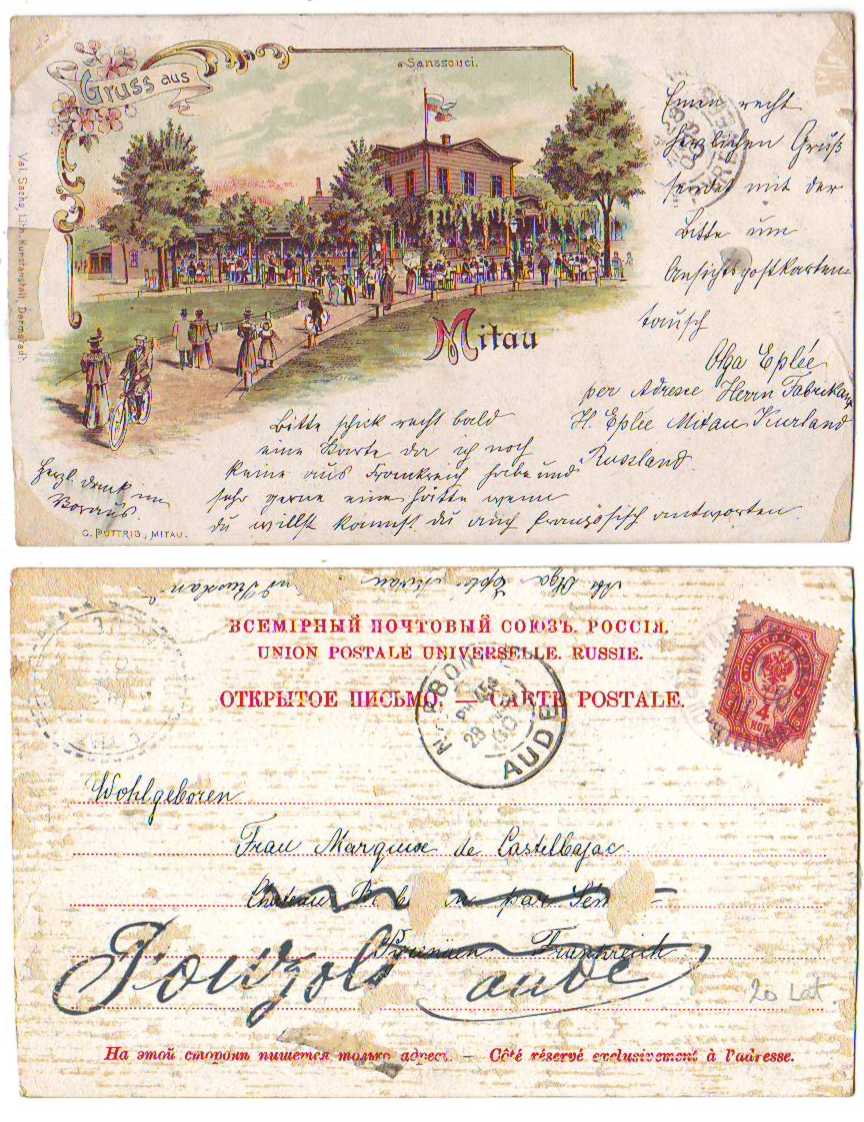 Gruss aus
Sanssouci.
Mitau
Val. Sachs, Lith. Kunstanstalt, Darmstadt.
C. PUTTRIB, MITAU.
Einen recht
herzlichen Gruß
sendet mit der
Bitte um
Ansichtspostkarten-
tausch
Olga Eplée
per Adresse Herrn Fabrikant
H. Eplée Mitau Kurland
Russland.
Bitte schick recht bald
eine Karte da ich noch
keine aus Frankreich habe und
sehr gerne eine hätte wenn
du willst kannst du auch französisch antworten.
Herzl. dank im
Voraus.
Olga
ВСЕМІРНЫЙ ПОЧТОВЫЙ СОЮЗЪ. РОССІЯ.
UNION POSTALE UNIVERSELLE. RUSSIE.
ОТКРЫТОЕ ПИСЬМО. — CARTE POSTALE.
AUDE
4
КОП
Wohlgeboren
Frau Marquise de Castelbajac
Chateau par
Frankreich
Pouzols aude
20 Lat.
На этой сторонѣ пишется только адресъ. — Côté réservé exclusivement à l'adresse.